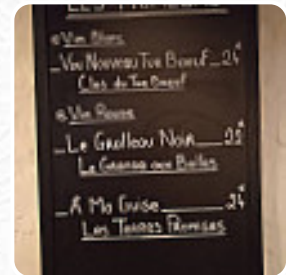 LES PRIMEURS
Vin Blanc
_Vin Nouveau Tue Boeuf_24€
Clos du Tue Boeuf
Vin Rouge
_Le Grolleau Noir___22€
La Grange aux Belles
_A Ma Guise______24€
Les Terres Promises